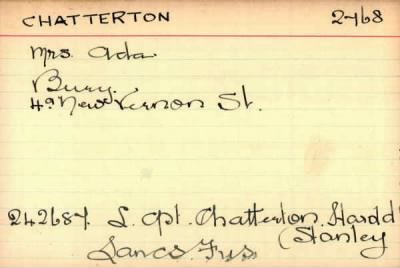 CHATTERTON 2468
Mrs. Ada
Bury.
49 New Vernon St.
242687. L. Cpl. Chatterton. Harold
(Stanley
Lancs. Fus